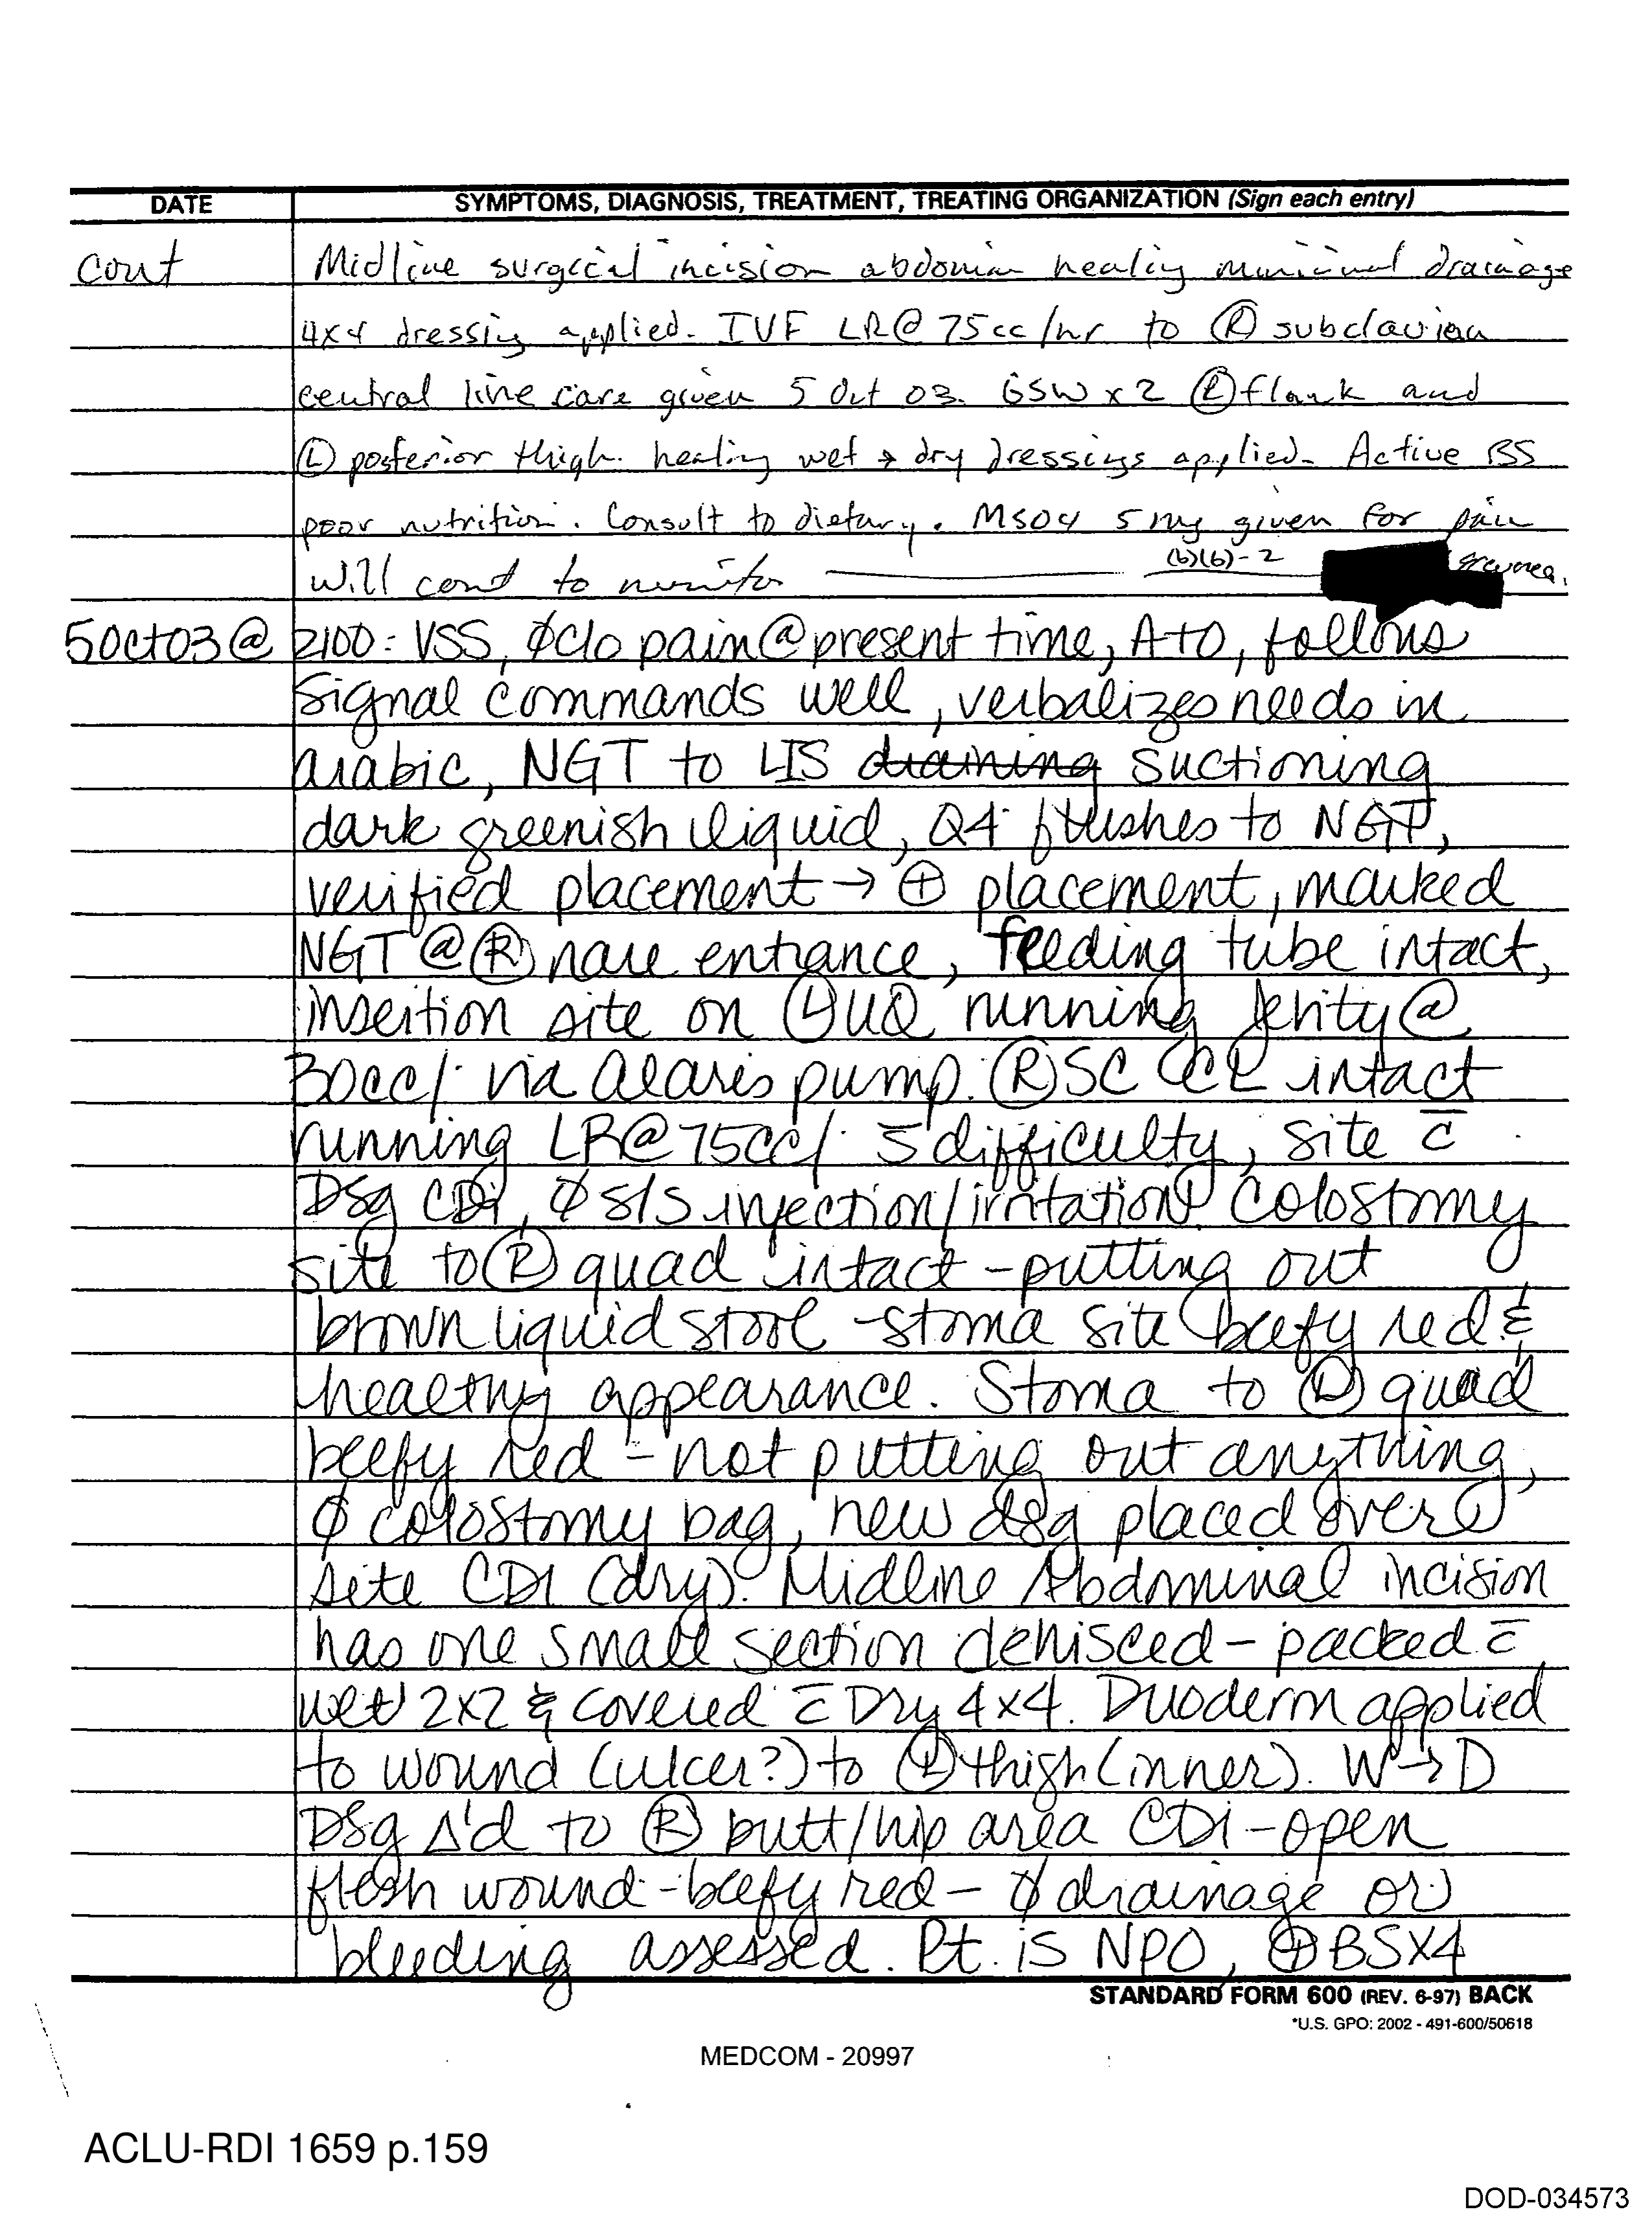 DATE SYMPTOMS, DIAGNOSIS, TREATMENT, TREATING ORGANIZATION (Sign each entry)
cont Midline surgical incision abdomin healing minimal drainage
4x4 dressing applied. IVF LR@ 75cc/hr to Ⓡ subclavian
central line care given 5 Oct 03. GSW x 2 flank and
Ⓛ posterior thigh. healing wet → dry dressings applied. Active BS
poor nutrition. Consult to dietary. MSO4 5 mg given for pain
will cont to monitor (b)(6)-2
5Oct03@ 2100: VSS, ∅c/o pain@present time, A+O, follows
signal commands well, verbalizes needs in
arabic, NGT to LIS draining suctioning
dark greenish liquid, Q4° flushes to NGT,
verified placement → ⊕ placement, marked
NGT @ Ⓡ nare entrance, feeding tube intact,
insertion site on Ⓛ UQ running Jevity @
30cc/° via alaris pump. Ⓡ SC CL intact
running LR@75cc/° s̄ difficulty, site c̄
Dsg CDi, ∅ s/s injection/irritation. Colostomy
site to Ⓡ quad intact - putting out
brown liquid stool - stoma site beefy red &
healthy appearance. Stoma to Ⓛ quad
beefy red - not putting out anything,
∅ colostomy bag, new dsg placed over
site CDI (dry). Midline Abdominal incision
has one small section dehisced - packed c̄
wet 2x2 & covered c̄ Dry 4x4. Duoderm applied
to wound (ulcer?) to Ⓛ thigh (inner). W→D
Dsg Δ'd to Ⓡ butt/hip area CDi - open
flesh wound - beefy red - ∅ drainage or
bleeding assessed. Pt. is NPO, ⊕ BSX4
STANDARD FORM 600 (REV. 6-97) BACK
*U.S. GPO: 2002 - 491-600/50618
MEDCOM - 20997
ACLU-RDI 1659 p.159
DOD-034573